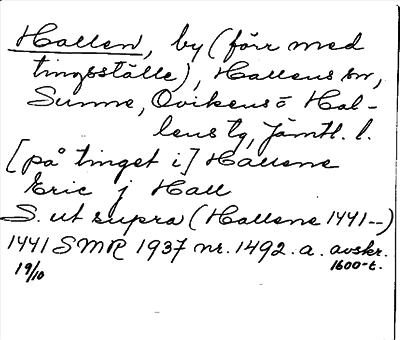 Hallen, by (förr med
tingsställe), Hallens sn,
Sunne, Ovikens o Hal-
lens tg, Jämtl. l.
[på tinget i] Hallene
Eric j Hall
S. ut supra (Hallene 1441--)
1441 SMR 1937 nr. 1492. a. avskr.
19/10 1600-t.